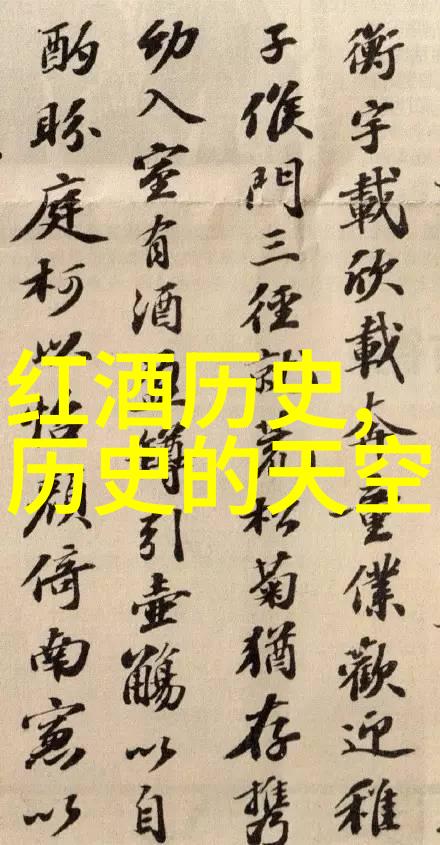 衡宇載欣載奔童僕歡迎稚
子候門三徑就荒松菊猶存携
幼入室有酒盈罇引壺觴以自
酌眄庭柯以怡顏倚南窓以
红酒历史,
历史的天空